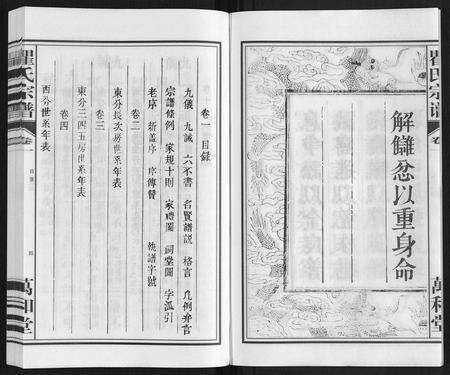 瞿氏宗譜
卷
萬和堂
解讎忿以重身命
卷一 目錄
九儀 九誡 六不書 名賢譜說 格言 凡例弁言
宗譜條例 家規十則 家禮圖 祠堂圖 字溫引
老序 新葢序 序傳贊 統譜字號
卷二
東分長次房世系年表
卷三
東分三四五房世系年表
卷四
西分世系年表
瞿氏宗譜
卷一
目錄
萬和堂